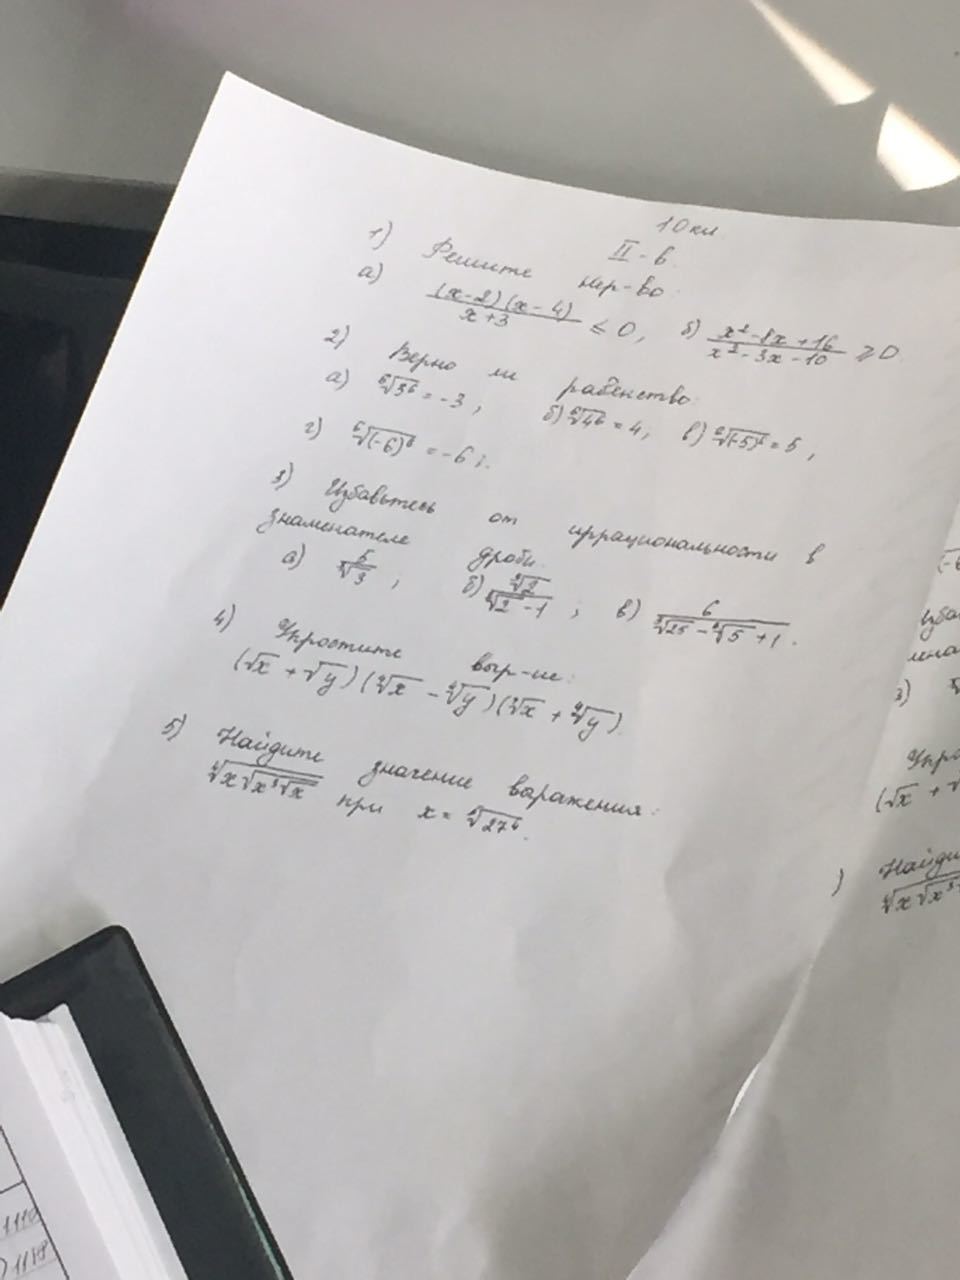 10 кл.
II - в.
1) Решите нер-во:
а) (x-2)(x-4)/(x+3) ≤ 0, б) (x²-8x+16)/(x²-3x-10) ≥ 0.
2) Верно ли равенство:
а) ⁶√3⁶ = -3; б) ⁶√4⁶ = 4; в) ⁶√(-5)⁶ = 5,
г) ⁶√(-6)⁶ = -6;.
3) Избавьтесь от иррациональности в
знаменателе дроби.
а) 5/√3; б) √2/(√2-1); в) 6/(∛25-∛5+1).
4) Упростите выр-ие:
(√x+√y)(⁴√x-⁴√y)(⁴√x+⁴√y).
5) Найдите значение выражения:
√x√x³√x при x = √27⁴.
(-6
Изба
мена
3)
Упро
(√x + √
) Найди
√x√x³
1110
1118